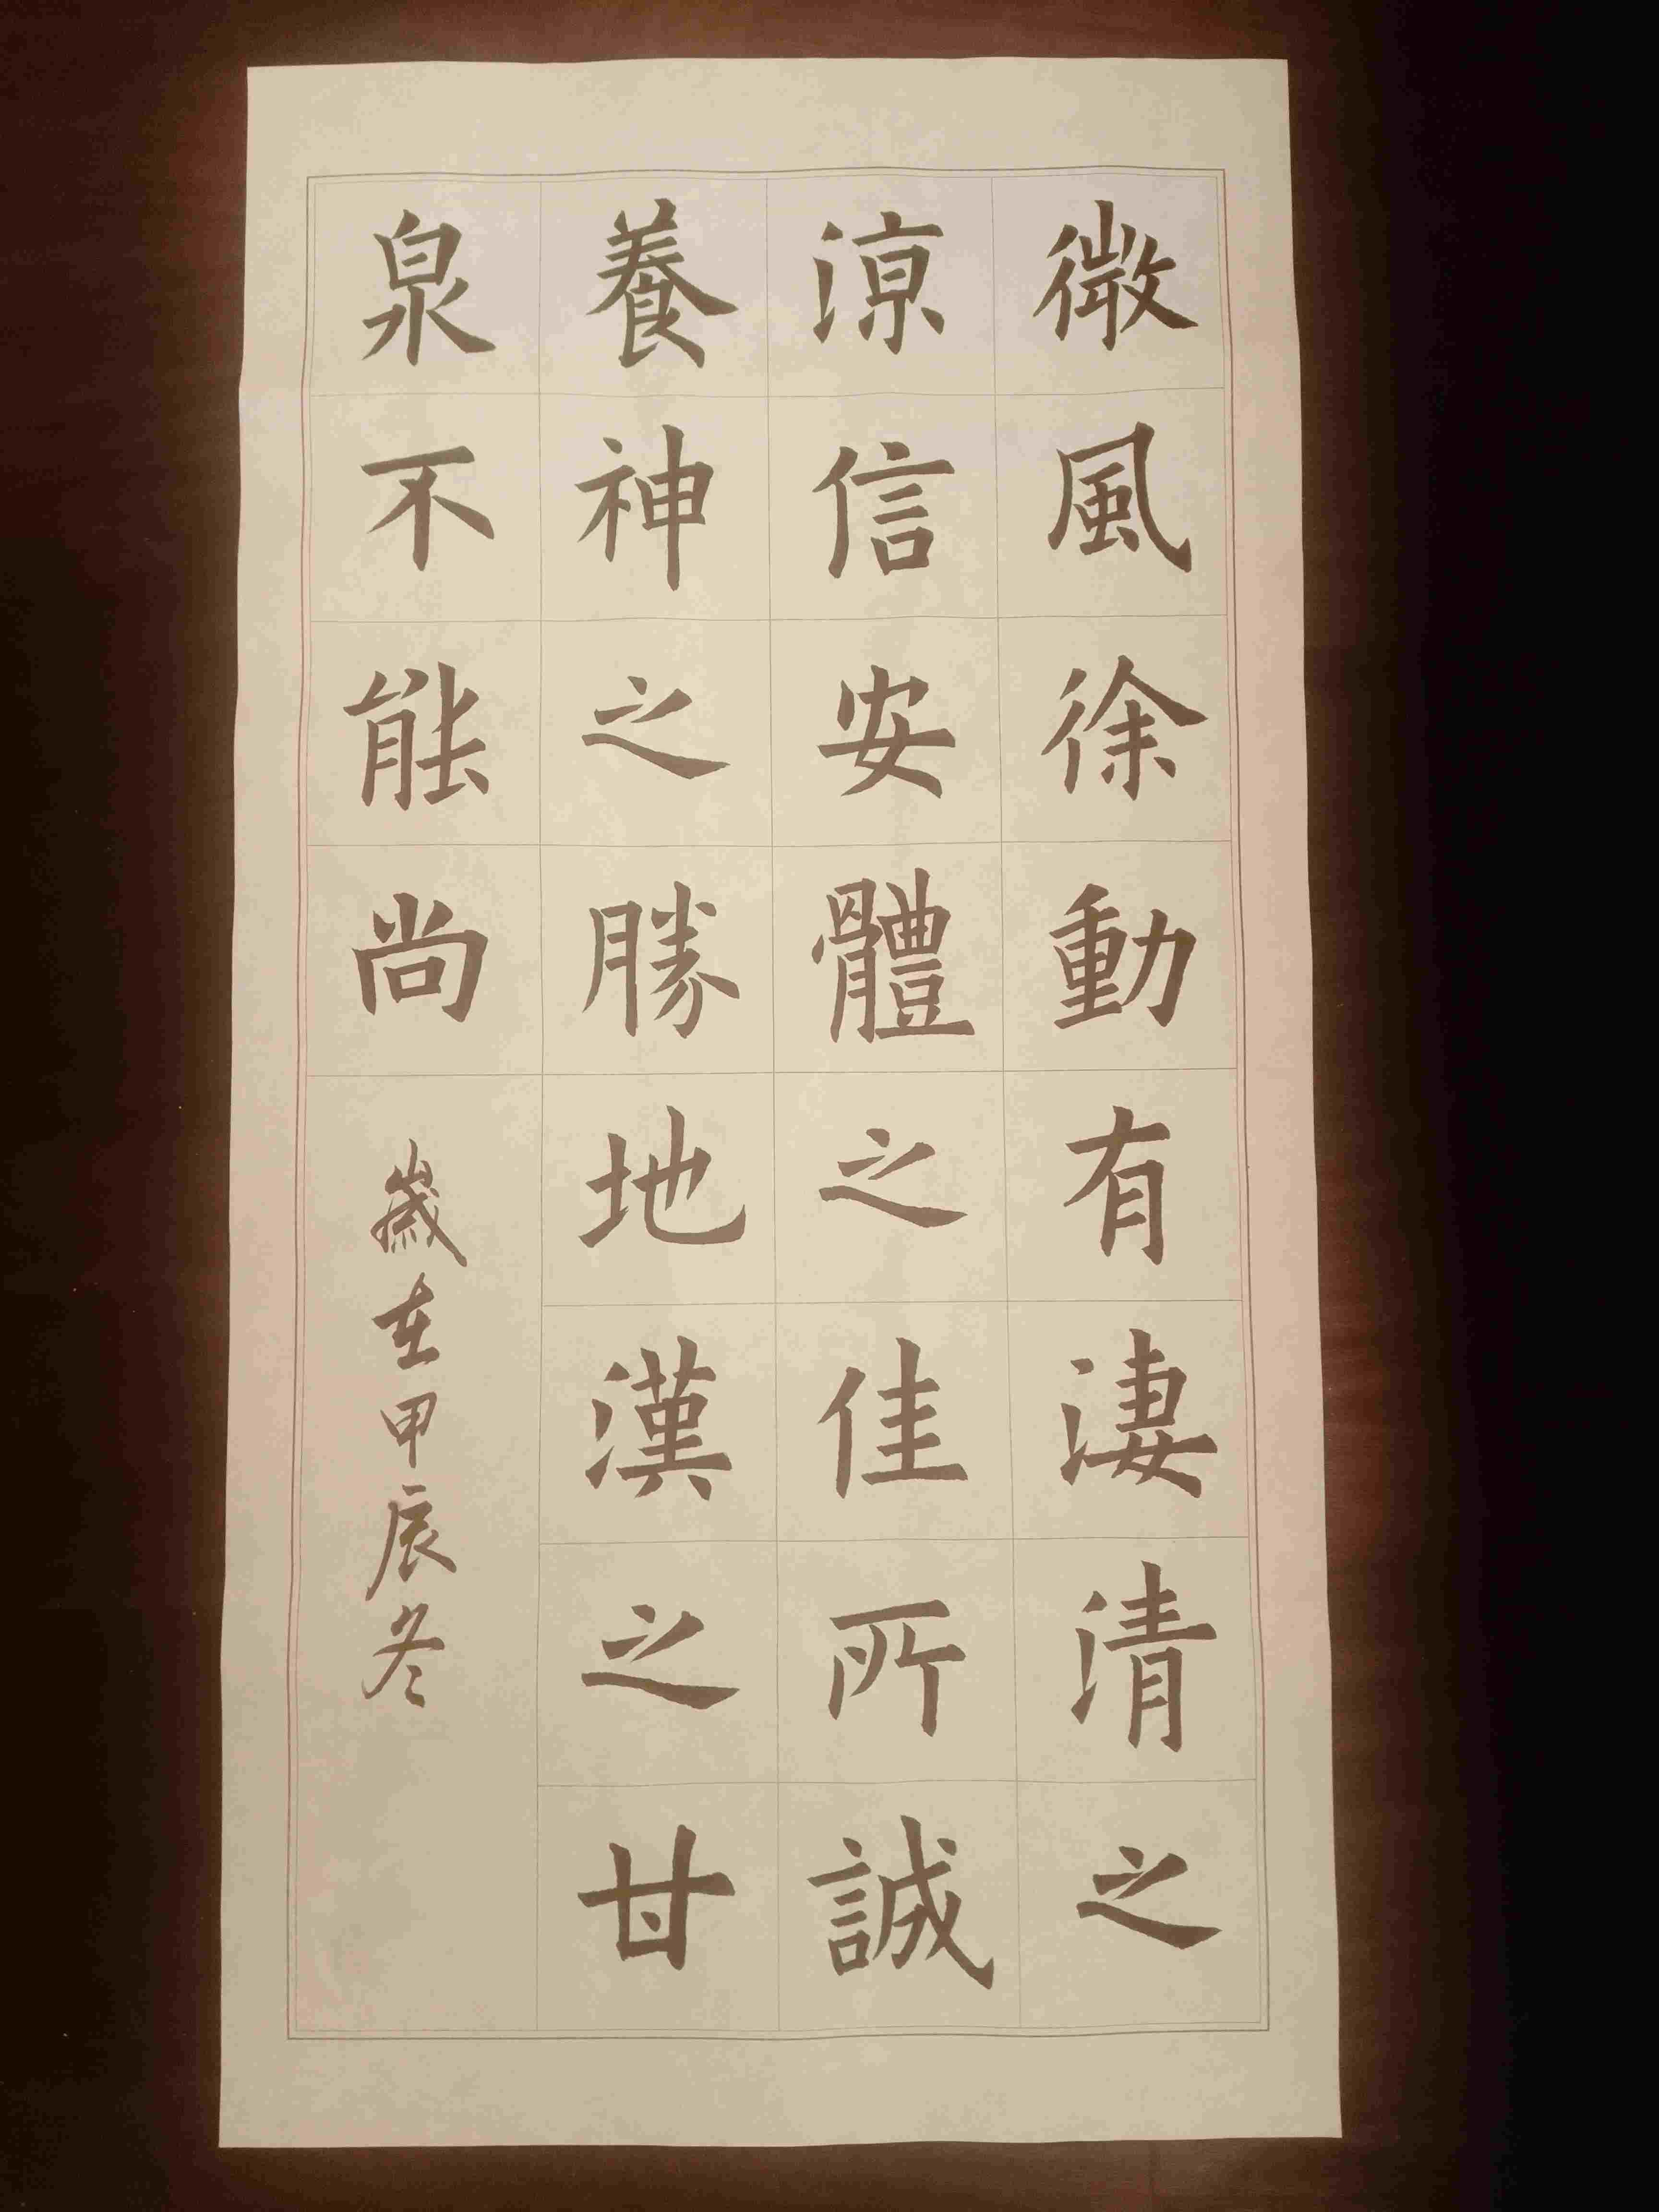 微風徐動有淒清之
涼信安體之佳所誠
養神之勝地漢之甘
泉不能尚
歲在甲辰冬